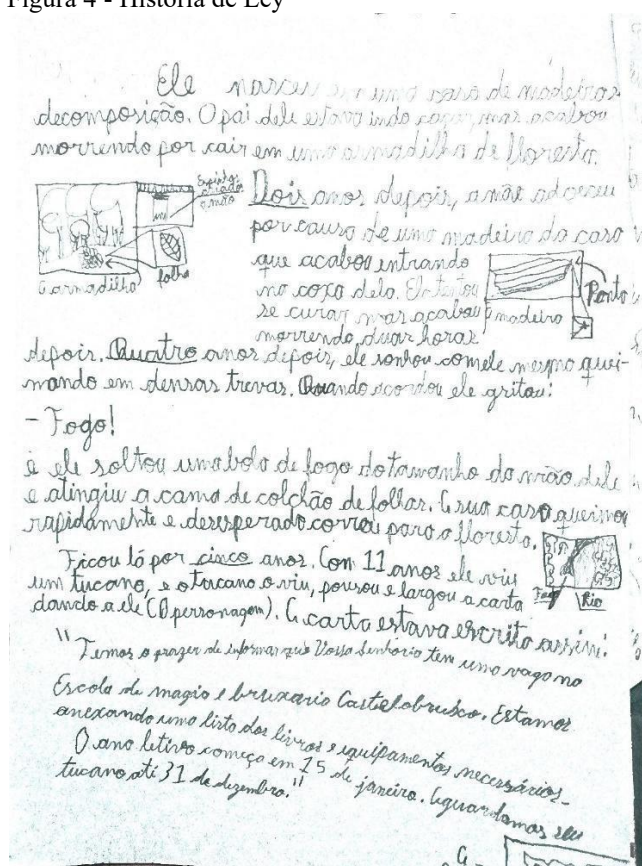 Figura 4 - História de Ley
Ele nasceu em uma casa de madeiras
decomposição. O pai dele estava indo caçar, mas acabou
morrendo por cair em uma armadilha de floresta.
Espinhos
a mão
A armadilha
folha
Dois anos depois, a mãe adoeceu
por causa de uma madeira da casa
que acabou entrando
na coxa dela. Ela tentou
se curar mas acabou
morrendo, duas horas
madeira
Ponta
depois. Quatro anos depois, ele sonhou com ele mesmo quei-
mando em densas trevas. Quando acordou ele gritou:
- Fogo!
e ele soltou uma bola de fogo do tamanho da mão dele
e atingiu a cama de colchão de folhas. A sua casa queimou
rapidamente e desesperado correu para a floresta.
Ficou lá por cinco anos. Com 11 anos ele viu
um tucano, e o tucano o viu, pousou e largou a carta
dando a ele (O personagem). A carta estava escrito assim:
Rio
"Temos o prazer de informar que Vossa Senhoria tem uma vaga na
Escola de magia e bruxaria Castelobruxo. Estamos
anexando uma lista dos livros e equipamentos necessários.
O ano letivo começa em 15 de janeiro. Aguardamos seu
tucano até 31 de dezembro."